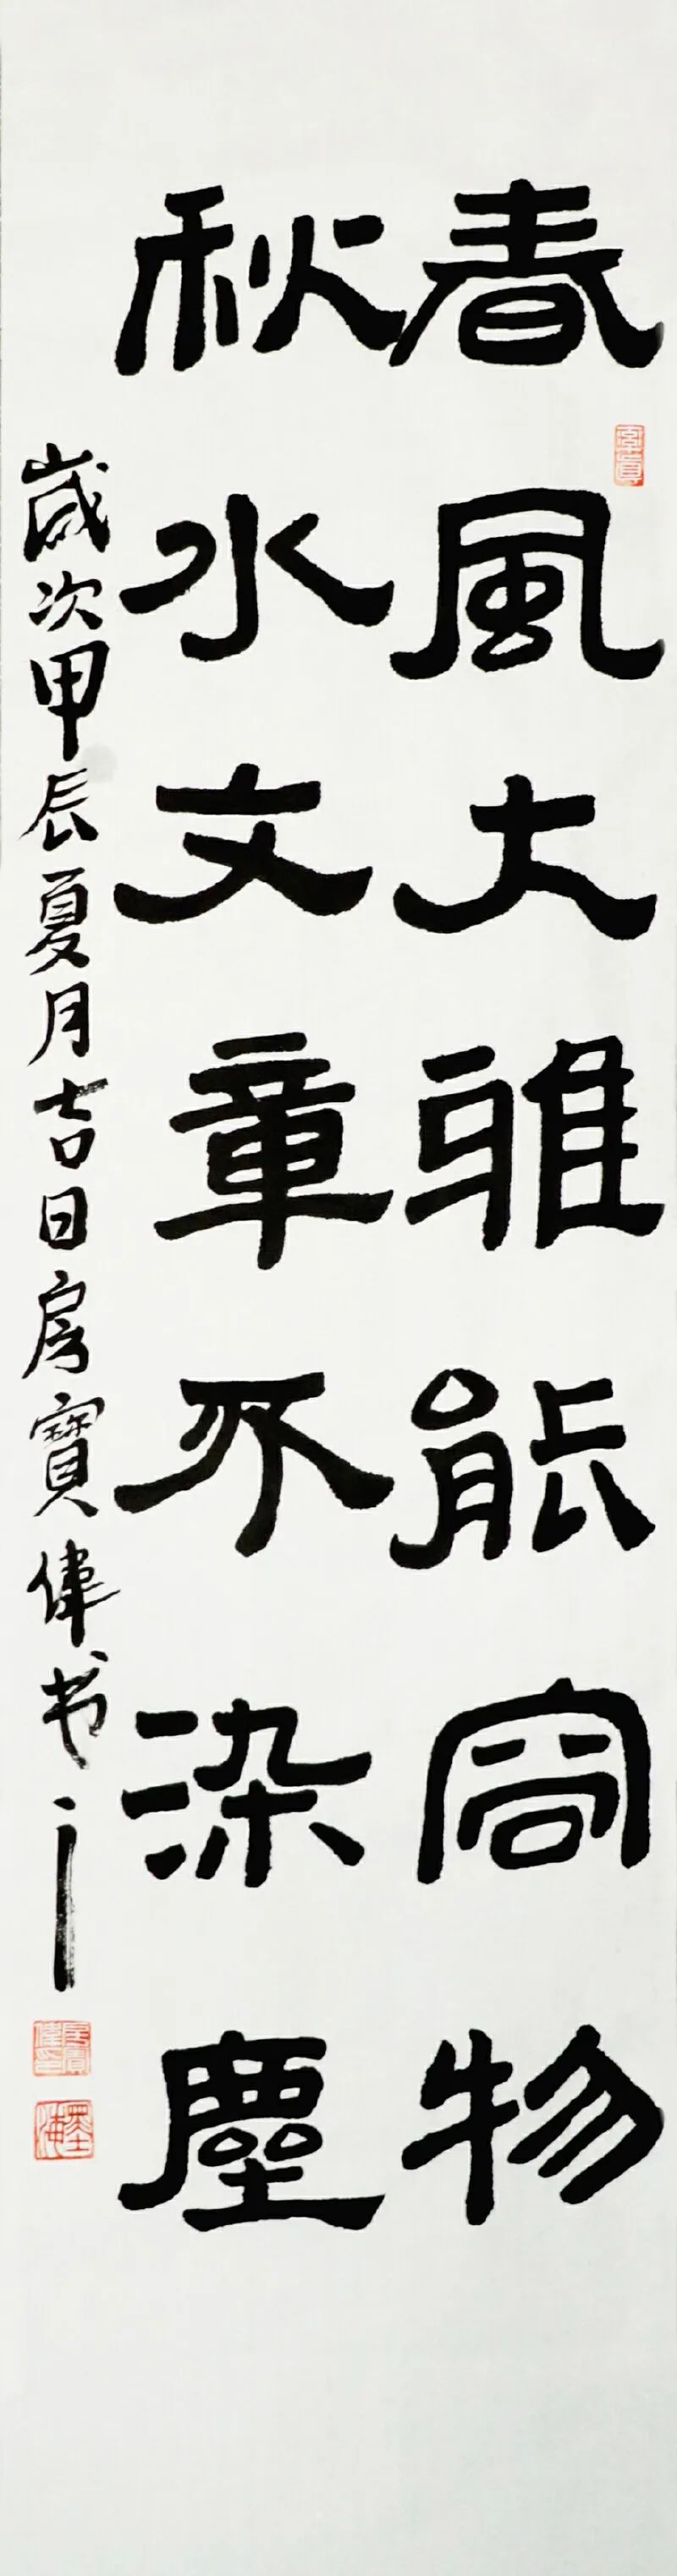 春風大雅能容物
秋水文章不染塵
歲次甲辰夏月吉日房寶偉书
墨海